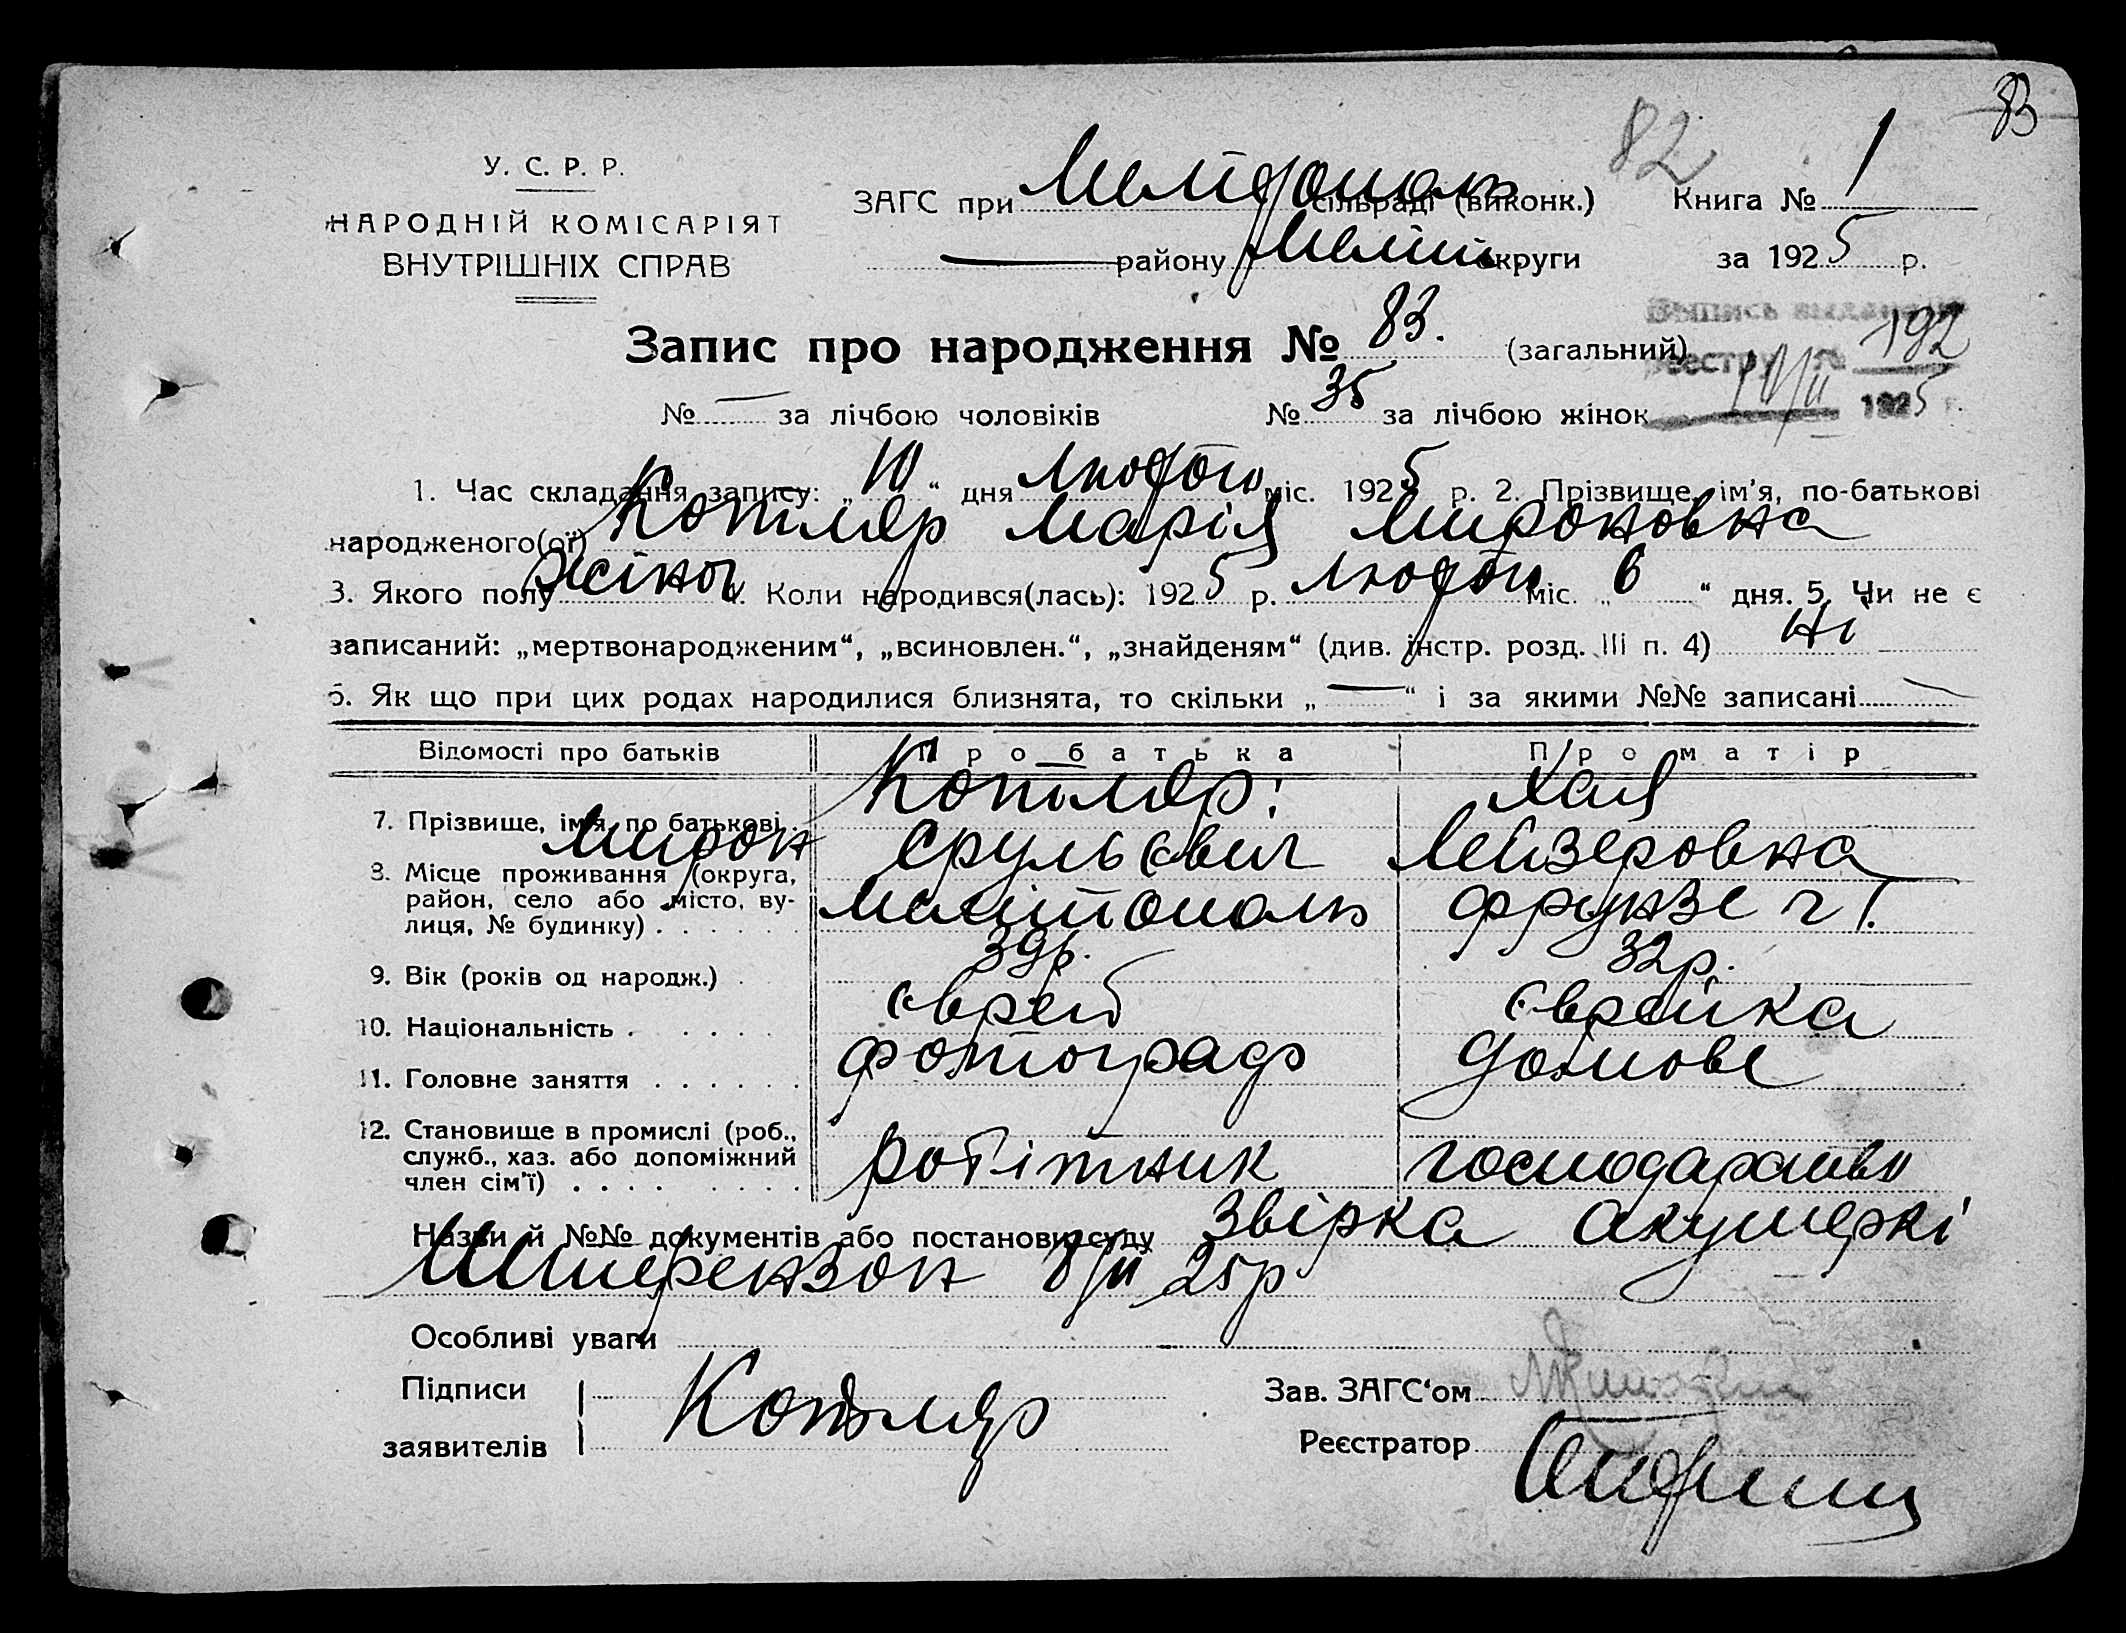 83
82
У. С. Р. Р.
НАРОДНІЙ КОМІСАРІЯТ
ВНУТРІШНІХ СПРАВ
ЗАГС при сільраді (виконк.) Книга № 1
району Меліт округи за 1925 р.
Запис про народження № 83. (загальний)
реестру № 192
1925 г.
№ — за лічбою чоловіків № 35 за лічбою жінок
1. Час складання запису: „10“ дня Лютого міс. 1925 р. 2. Прізвище, ім’я, по-батькові
народженого(ої) Котляр Марія Мироновна
3. Якого полу жіноч 4. Коли народився(лась): 1925 р. Лютого міс. „6“ дня. 5. Чи не є
записаний: „мертвонародженим“, „всиновлен.“, „знайденям“ (див. інстр. розд. III п. 4) Ні
6. Як що при цих родах народилися близнята, то скільки „—“ і за якими №№ записані —
Відомості про батьків Про батька Про матір
7. Прізвище, ім’я, по батькові Котляр Хая
Мирон Срульєвич Лейзеровна
8. Місце проживання (округа,
район, село або місто, ву-
лиця, № будинку) Мелітополь Фрунзе
9. Вік (років од народж.) 39р. 32р.
10. Національність Єврей Єврейка
11. Головне заняття фотограф домове
12. Становище в промислі (роб.,
служб., хаз. або допоміжний
член сім’ї) робітник господарство
Назви й №№ документів або постанови суду Звірка акушеркі
8/II 25р
Особливі уваги
Підписи
заявителів Котляр
Зав. ЗАГС‘ом
Реєстратор